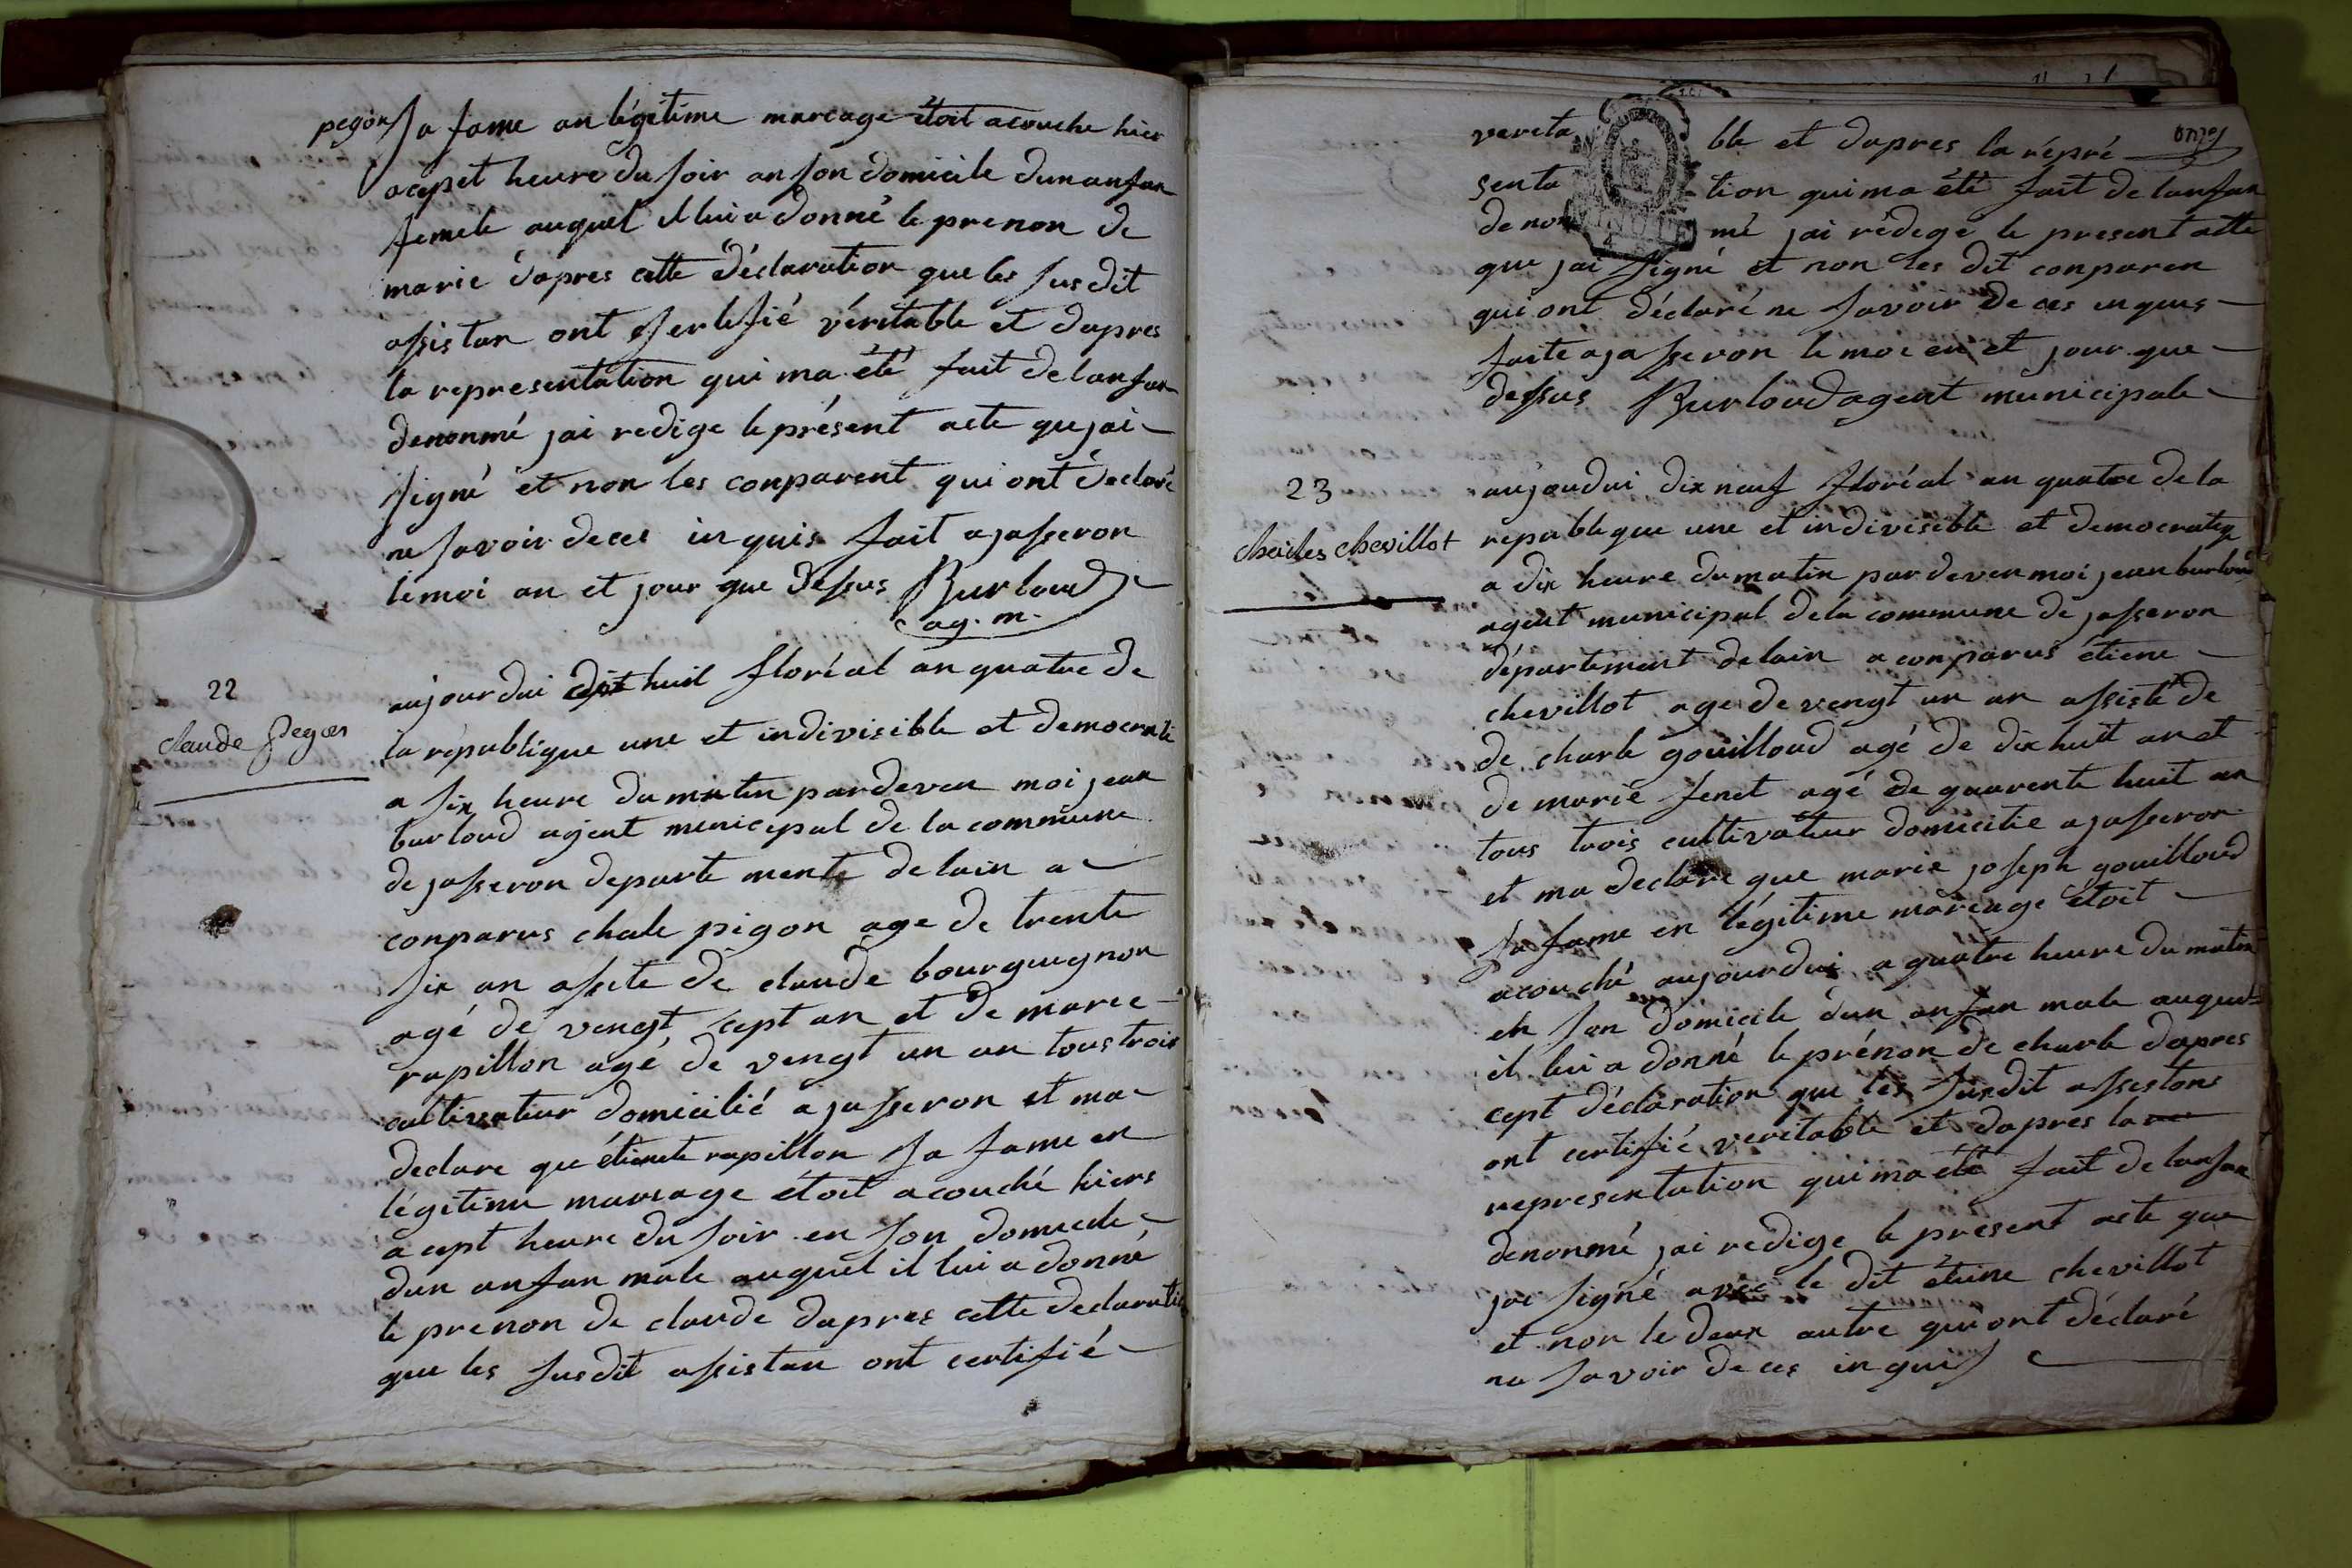 pegon sa fame an légitime mareage étoit acouche hier
acepet heure du soir an son domicile dun anfan
femele auquel il lui a donné le prenon de
marie dapres cette déclaration que les susdit
assistan ont sertifié véritable et dapres
la representation qui ma été fait de lanfan
denonmé jai redige le présent acte que jai
signé et non les conparent qui ont déclaré
ne savoir de ces in quis fait a jasseron
le moi an et jour que dessus Burloud
ag. m.
22
claude pegon
aujourdui dixhuit floréal an quatre de
la république une et indivisible et democrati
a six heure du matin pardevan moi jean
burloud agent municipal de la commune
de jasseron departement de lain a
conparus chale pigon age de trente
six an assite de claude bourguignon
agé de vengt cept an et de marie
rapillon agé de vengt un an tous trois
cultivateur domicilié a jasseron et ma
declare que étienete rapillon sa fame en
légitime mareage étoit acouché hiers
a cept heure du soir en son domicile
dun anfan male auquel il lui a donné
le prenon de claude dapres cette declaratio
que les susdit assistan ont certifié
verita ble et dapres la répré
onze
senta tion qui ma été fait de lanfan
denon mé jai rédegé le present atte
que jai signé et non les dit conparan
qui ont déclaré ne savoir de ces in quis
faite a jasseron le moi en et jour que
dessus Burloud agent municipale
23
charles chevillot
aujoudui dix neuf floréal an quatre de la
republeque une et indivisible et democratiq
a dix heure du matin pardevan moi jean burloud
agent municipal de la commune de jasseron
département de lain a conparus étiene
chevillot age de vengt un an assisté de
de charle gouilloud agé de dix huit an et
de marie fenet agé de quarente huit an
tous trois cultivateur domicilie a jasseron
et ma declare que marie joseph gouilloud
sa fame en légitime mareage étoit
acouché aujourdui a quatre heure du matin
en son domicile dun anfan male auquel
il lui a donné le prénon de charle dapres
cept déclaration que les susdit assistans
ont certifié veritable et dapres la
representation qui ma été fait de lanfan
denonmé jai redige le present acte que
jai signé avec le dit étiene chevillot
et non le deux autre qui ont déclaré
ne savoir de ces in quis